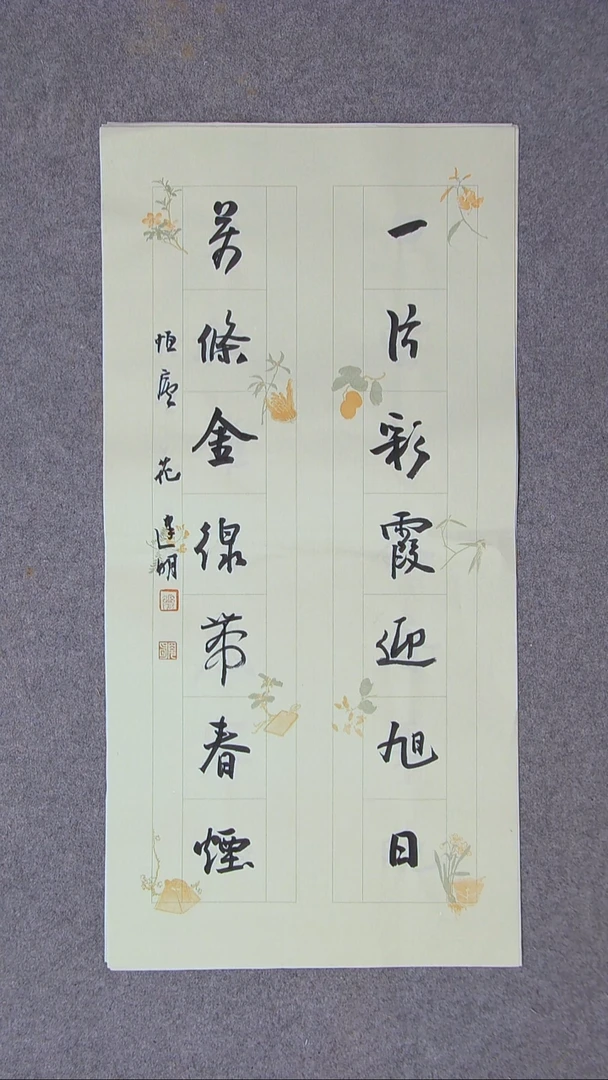 一片彩霞迎旭日
萬條金線帶春煙
恒廬 花達明